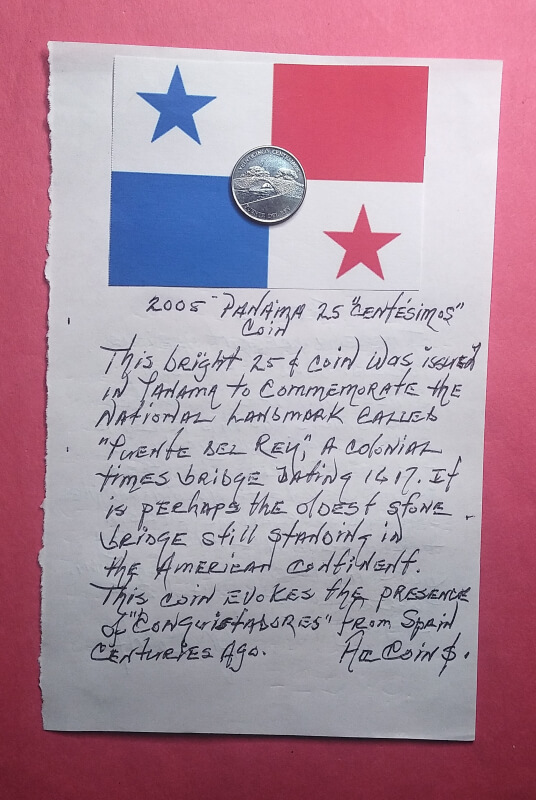 PUENTE DEL REY
2005 - PANAMA 25 "CENTÉSIMOS"
COIN
This bright 25 ¢ coin was issued
in Panama to commemorate the
National Landmark called
"Puente del Rey", a colonial
times bridge dating 1617. It
is perhaps the oldest stone
bridge still standing in
the American continent.
This coin evokes the presence
of "Conquistadores" from Spain
centuries ago. Coin$.